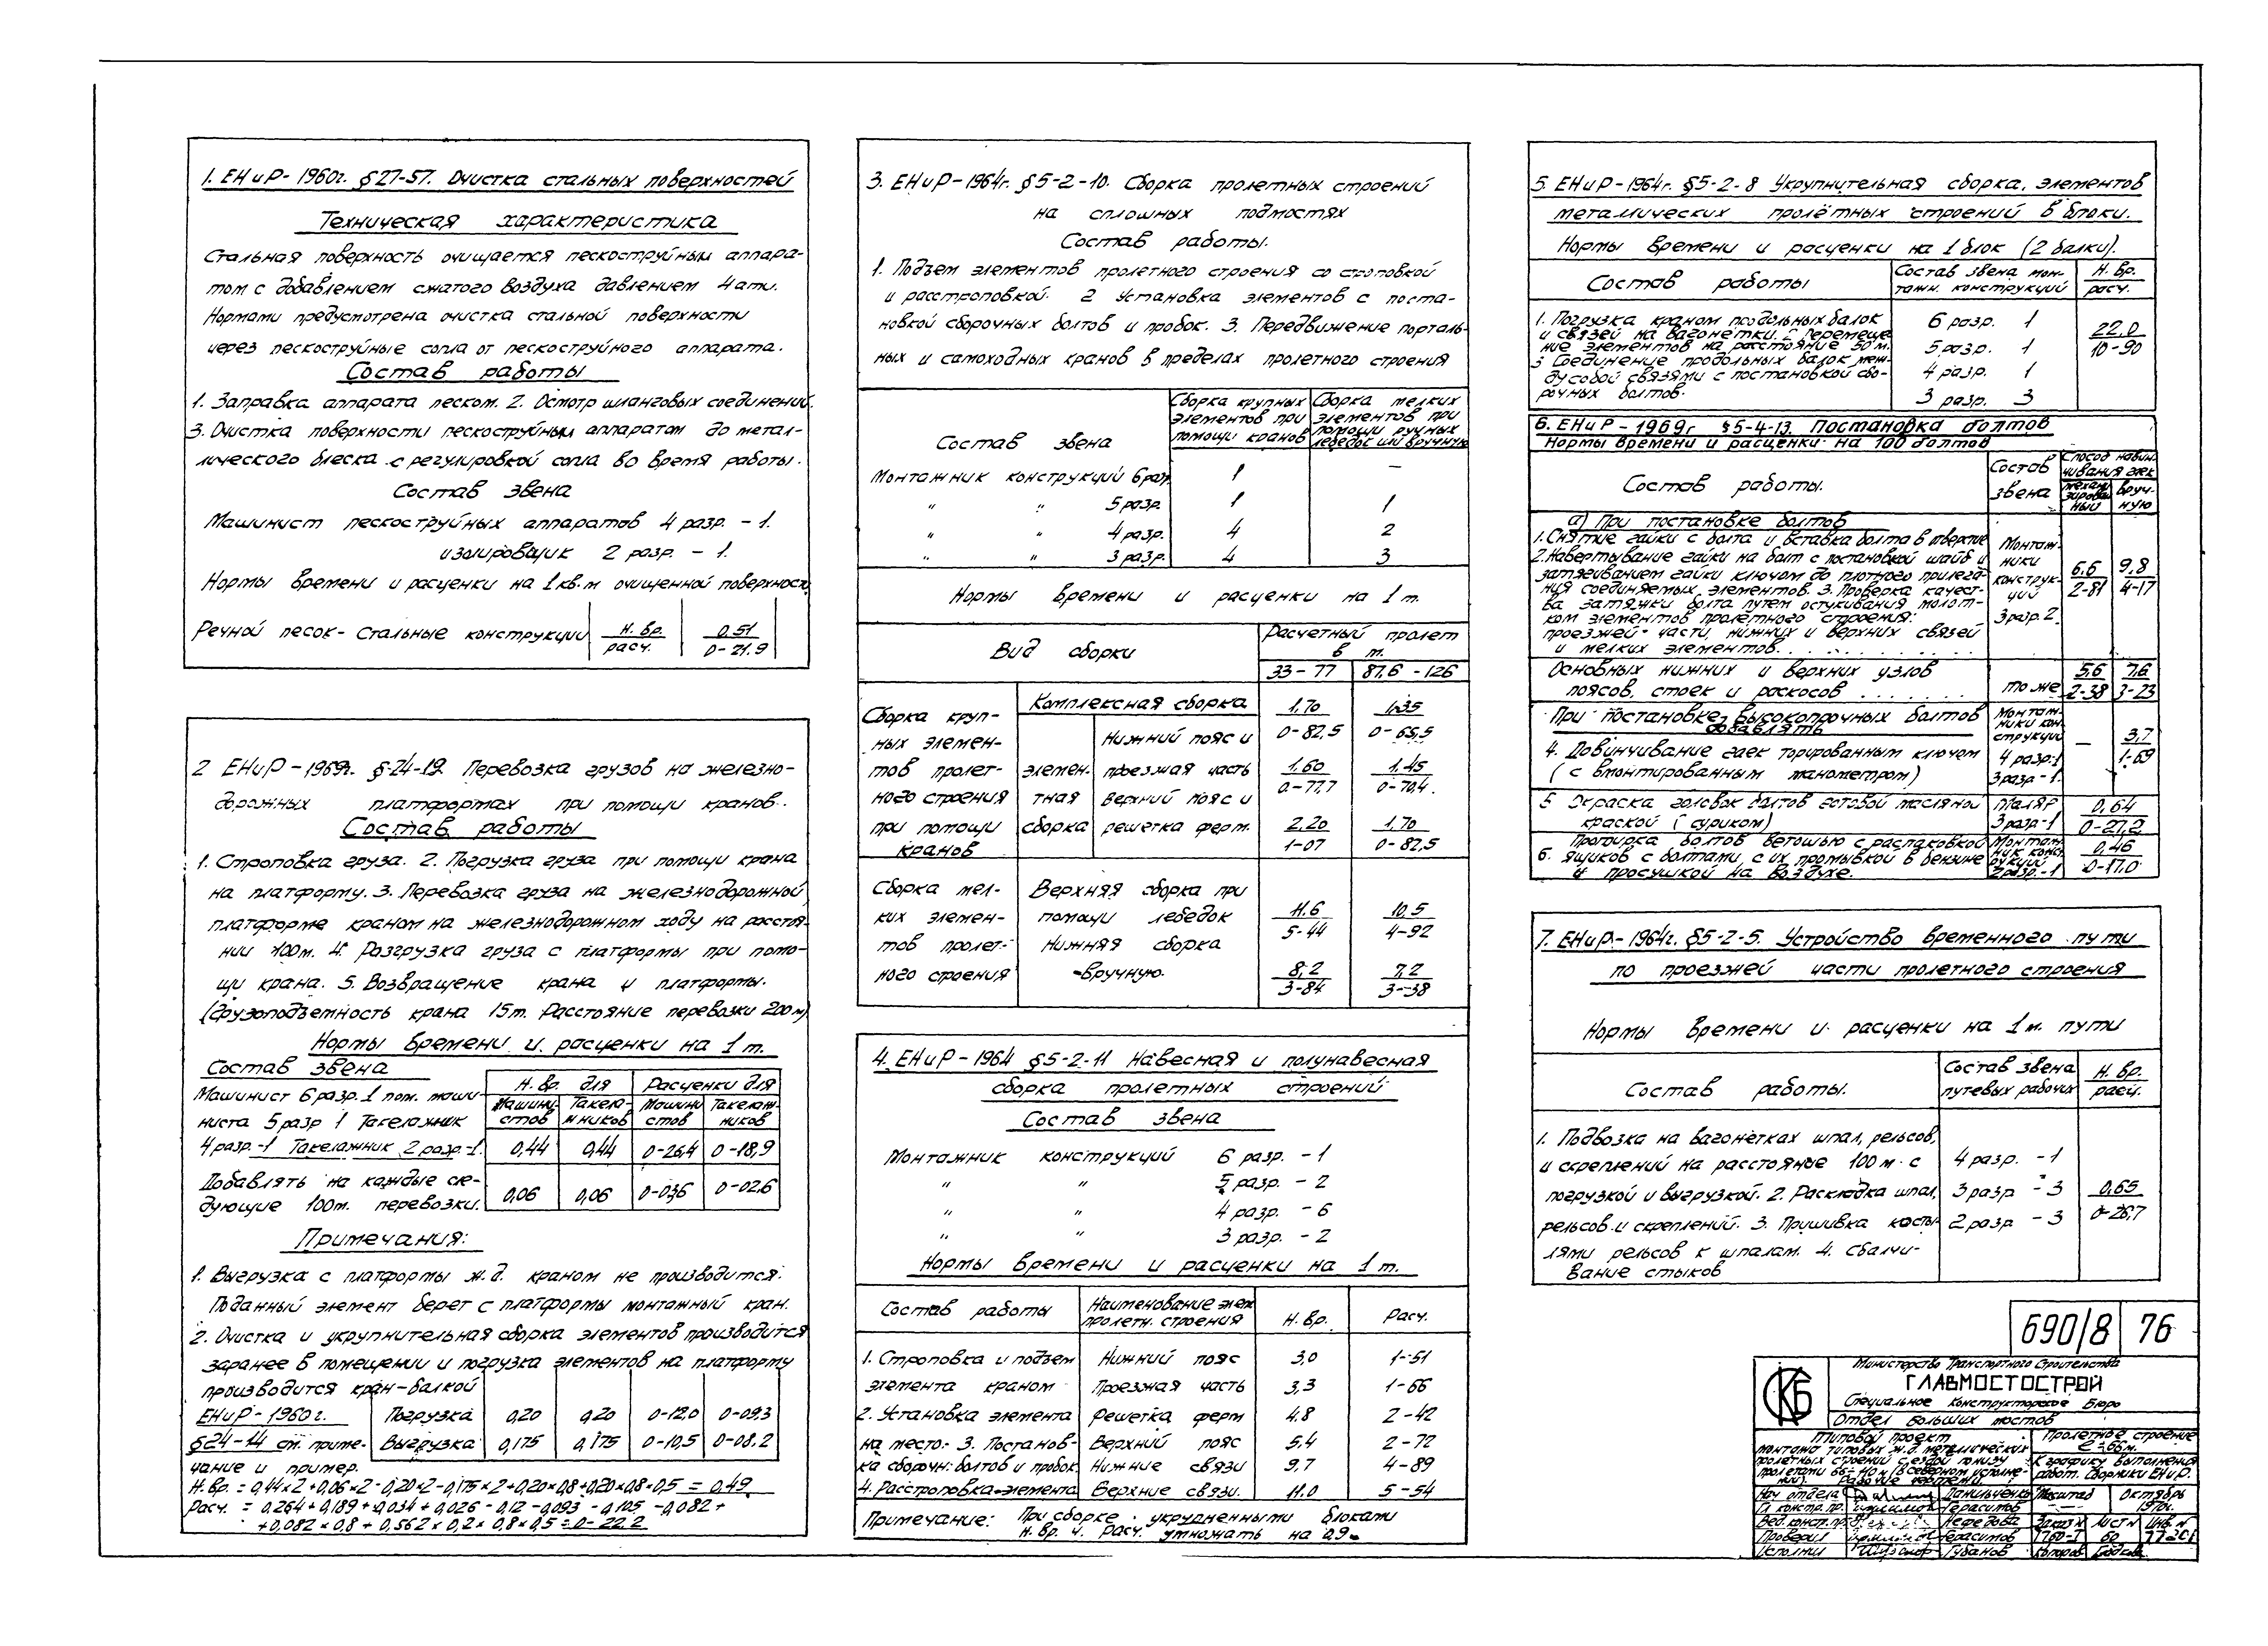 1. ЕНиР-1960г. §27-57. Очистка стальных поверхностей
Техническая характеристика
Стальная поверхность очищается пескоструйным аппара-
том с добавлением сжатого воздуха давлением 4 ати.
Нормами предусмотрена очистка стальной поверхности
через пескоструйные сопла от пескоструйного аппарата.
Состав работы
1. Заправка аппарата песком. 2. Осмотр шланговых соединений.
3. Очистка поверхности пескоструйным аппаратом до метал-
лического блеска с регулировкой сопла во время работы.
Состав звена
Машинист пескоструйных аппаратов 4 разр. - 1.
изолировщик 2 разр. - 1.
Нормы времени и расценки на 1 кв.м очищенной поверхност.
Речной песок - стальные конструкции Н. вр. 0.51
расч. 0-21.9
2 ЕНиР-1969г. §24-19. Перевозка грузов на железно-
дорожных платформах при помощи кранов.
Состав работы
1. Строповка груза. 2. Погрузка груза при помощи крана
на платформу. 3. Перевозка груза на железнодорожной
платформе краном на железнодорожном ходу на расстоя-
нии 100м. 4. Разгрузка груза с платформы при помо-
щи крана. 5. Возвращение крана и платформы.
(Грузоподъемность крана 15т. Расстояние перевозки 200м)
Нормы времени и расценки на 1 т.
Состав звена
Н. вр. для Расценки для
Машинист 6 разр. 1 пом. маши-
Машини-стов Такела-жников Машини стов Такелаж-ников
ниста 5 разр 1 Такелажник
4 разр.-1 Такелажник 2 разр-1. 0,44 0,44 0-26,4 0-18,9
Добавлять на каждые сле-
дующие 100т. перевозки. 0,06 0,06 0-03,6 0-02,6
Примечания:
1. Выгрузка с платформы ж.д. краном не производится.
Поданный элемент берет с платформы монтажный кран.
2. Очистка и укрупнительная сборка элементов производится
заранее в помещении и погрузка элементов на платформу
производится кран-балкой
ЕНиР-1960г. Погрузка 0,20 0,20 0-12,0 0-09,3
§24-14 см. приме- Выгрузка 0,175 0,175 0-10,5 0-08.2
чание и пример.
Н.вр. = 0,44×2+0,06×2-0,20×2-0,175×2+0,20×0,8+0,20×0,8×0,5 = 0,49
Расч. = 0,264+0,189+0,034+0,026-0,12-0,093-0,105-0,082+
+0,082×0,8+0,562×0,2×0,8×0,5=0-22.2
3. ЕНиР-1964г. §5-2-10. Сборка пролетных строений
на сплошных подмостях
Состав работы.
1. Подъем элементов пролетного строения со строповкой
и расстроповкой. 2 Установка элементов с поста-
новкой сборочных болтов и пробок. 3. Передвижение порталь-
ных и самоходных кранов в пределах пролетного строения
Состав звена
Сборка крупных элементов при помощи кранов
Сборка мелких элементов при помощи ручных лебедок или вручную
Монтажник конструкций 6 разр. 1 —
" " 5 разр. 1 1
" " 4 разр. 4 2
" " 3 разр. 4 3
Нормы времени и расценки на 1 т.
Вид сборки Расчетный пролет
в т.
33-77 87,6-126
Сборка круп- Комплексная сборка 1.70 1.35
ных элемен- Нижний пояс и 0-82,5 0-65,5
тов пролет- элемен. проезжая часть 1.60 1.45
ного строения тная верхний пояс и 0-77,7 0-70,4.
при помощи сборка решетка ферм. 2.20 1.70
кранов 1-07 0-82,5
Сборка мел- Верхняя сборка при
ких элемен- помощи лебедок 11.6 10.5
тов пролет- Нижняя сборка 5-44 4-92
ного строения -вручную. 8,2 7,2
3-84 3-38
4. ЕНиР-1964 §5-2-11 Навесная и полунавесная
сборка пролетных строений
Состав звена
Монтажник конструкций 6 разр. - 1
" " 5 разр. - 2
" " 4 разр. - 6
" " 3 разр. - 2
Нормы времени и расценки на 1 т.
Состав работы Наименование элем. пролетн. строения Н. вр. Расч.
1. Строповка и подъем Нижний пояс 3,0 1-51
элемента краном Проезжая часть 3,3 1-66
2. Установка элемента Решетка ферм 4.8 2-42
на место. 3. Постанов- Верхний пояс 5.4 2-72
ка сборочн. болтов и пробок. Нижние связи 9,7 4-89
4. Расстроповка элемента Верхние связи. 11.0 5-54
Примечание: При сборке укрупненными блоками
Н. вр. и расч. умножать на 0,9
5. ЕНиР-1964г. §5-2-8 Укрупнительная сборка элементов
металлических пролётных строений в блоки.
Нормы времени и расценки на 1 блок (2 балки).
Состав работы Состав звена мон-тажн. конструкций Н. вр. расч.
1. Погрузка краном продольных балок 6 разр. 1
и связей на вагонетки. 2 Перемеще- 22,0
ние элементов на расстояние 50 м. 5 разр. 1 10-90
3 Соединение продольных балок меж-
ду собой связями с постановкой сбо- 4 разр. 1
рочных болтов. 3 разр. 3
6. ЕНиР-1969г §5-4-13. Постановка болтов
Нормы времени и расценки на 100 болтов
Состав работы. Состав звена Способ навин-чивания гаек
механи-зирован-ный вруч-ную
а) При постановке болтов
1. Снятие гайки с болта и вставка болта в отверстие
2. Навертывание гайки на болт с постановкой шайб и
затягиванием гайки ключом до плотного прилега-
ния соединяемых элементов. 3. Проверка качест-
ва затяжки болта путем остукивания молот-
ком элементов пролетного строения:
проезжей части, нижних и верхних связей
и мелких элементов.
Монтаж-ники конструк-ций 3 разр. 2 6,6 2-81 9,8 4-17
Основных нижних и верхних узлов 5,6 7,6
поясов, стоек и раскосов то же 2-38 3-23
При постановке высокопрочных болтов
добавлять
4. Довинчивание гаек торированным ключом
(с вмонтированным манометром)
Монтаж-ники кон-струкций 4 разр-1 3 разр-1. — 3,7 1-69
5 Окраска головок болтов готовой масляной Маляр 0,64
краской (суриком) 3 разр-1 0-27,2
Протирка болтов ветошью с распаковкой
6. ящиков с болтами, с их промывкой в бензине
и просушкой на воздухе.
Монтаж-ник конст-рукций 2 разр.-1 0,46 0-17.0
7. ЕНиР-1964г. §5-2-5. Устройство временного пути
по проезжей части пролетного строения
Нормы времени и расценки на 1 м. пути
Состав работы. Состав звена путевых рабочих Н. вр. расч.
1. Подвозка на вагонетках шпал, рельсов,
и скреплений на расстояние 100 м с 4 разр. - 1
погрузкой и выгрузкой. 2. Раскладка шпал, 3 разр - 3 0,65
рельсов и скреплений. 3. Пришивка косты- 2 разр - 3 0-26,7
лями рельсов к шпалам. 4. Сбалчи-
вание стыков
690/8 76
СКБ
Министерство Транспортного Строительства
ГЛАВМОСТОСТРОЙ
Специальное Конструкторское Бюро
Отдел больших мостов
Типовой проект
монтажа типовых ж.д. металлических
пролетных строений с ездой понизу
пролетами 66-110 м (в северном исполне-
нии). Рабочие чертежи
Пролетное строение
ℓ=66м.
К графику выполнения
работ. Сборники ЕНиР.
Нач отдела Данильченко Масштаб Октябрь
Гл констр. пр. Герасимов — 1970г.
Вед. констр. пр. Нефедова Заказ № Лист № Инв №
Проверил Герасимов 1760-I 60 77201
Исполнил Губанов Копиров